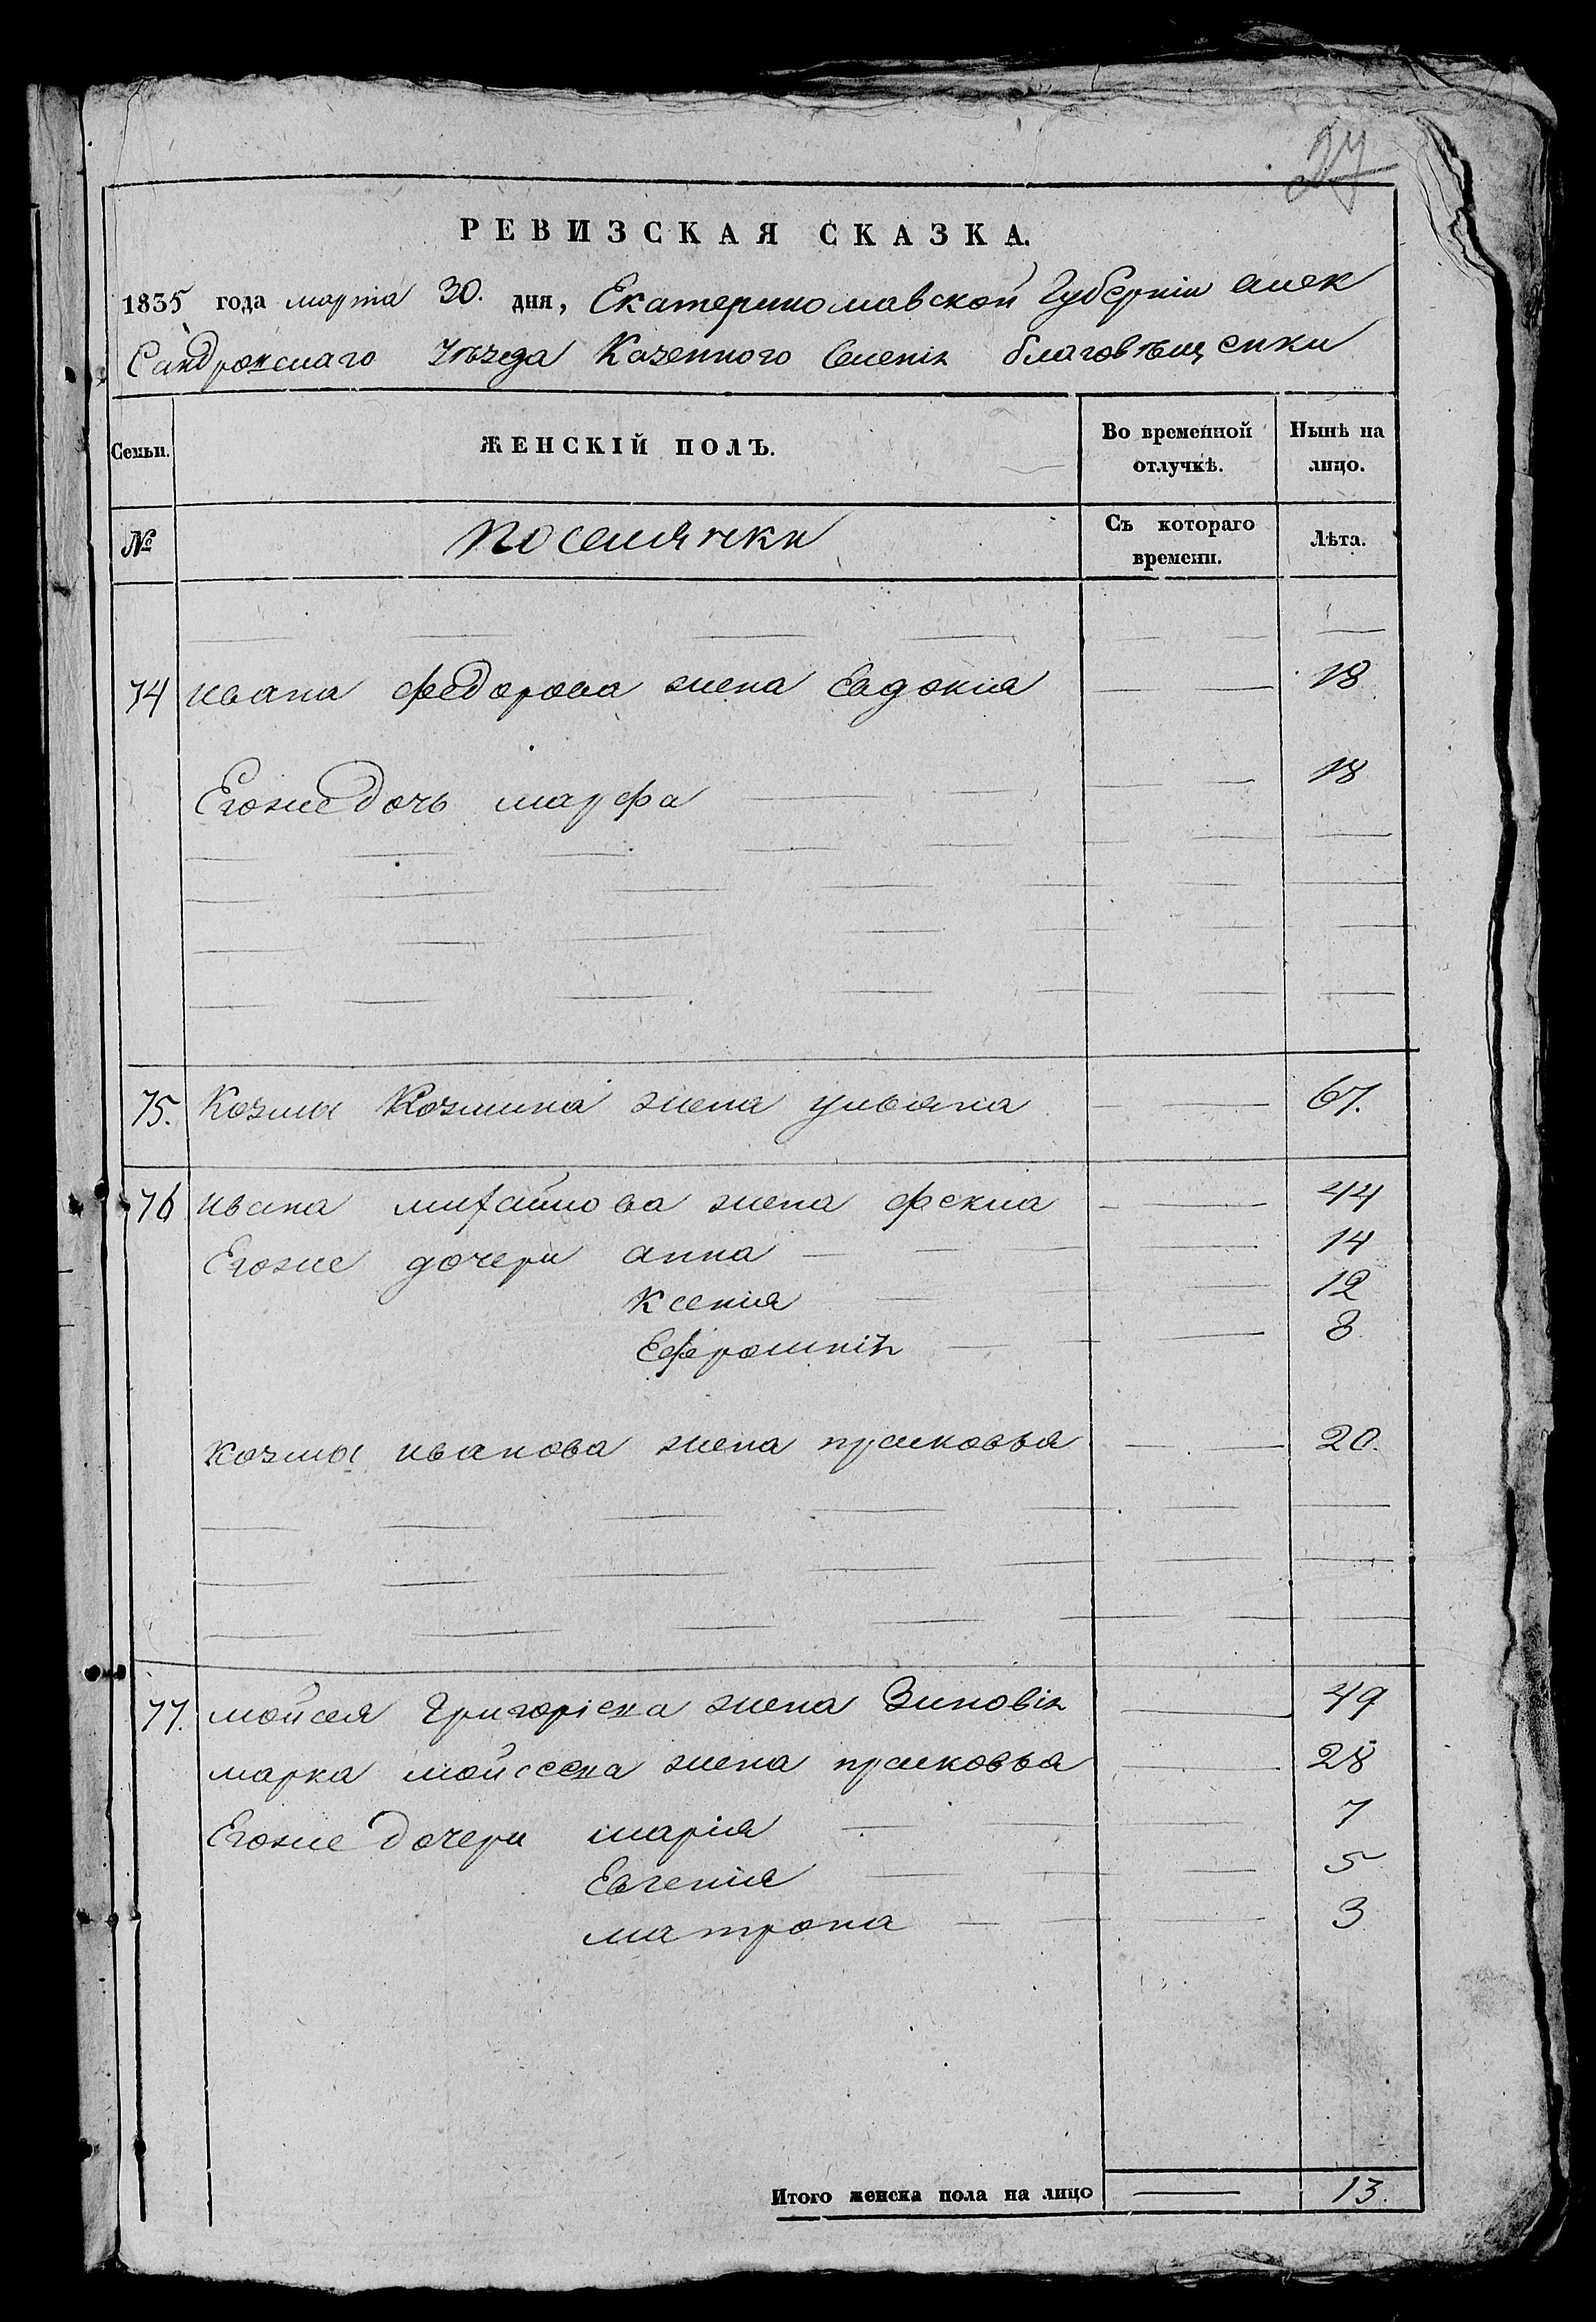 27
РЕВИЗСКАЯ СКАЗКА.
1835 года марта 30. дня, Екатеринославской Губерніи Алек
Сандровскаго Уѣзда Казенного Селенія благовѣщенки
Семьи. ЖЕНСКІЙ ПОЛЪ. Во временной отлучкѣ. Нынѣ на лицо.
№ поселячки Съ котораго времени. Лѣта.
74 ивана федорова жена Евдокия 18
Егоже дочь марфа 18
75. Козмы Козмина жена ульяна 67.
76 ивана михайлова жена фекла 44
Егоже дочери анна 14
Ксения 12
Ефросинія 8
козмы иванова жена прасковья 20.
77. мойсея Григоріева жена Зиновія 49
марка мойсеева жена прасковья 28
Егоже дочери мария 7
Евгения 5
матрона 3
Итого женска пола на лицо 13.